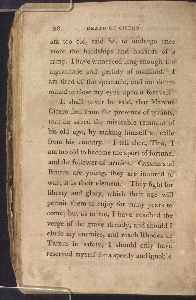 90 DEATH OF CICERO
am too old, said he, to undergo once
more the hardships and hazards of a
camp. I have witnessed long enough the
ingratitude and perfidy of mankind. I
am tired of the spectacle, and am deter-
mined to close my eyes upon it forever.
It shall never be said, that Marcus
Cicero fled from the presence of tyrants;
that he saved the miserable remnant of
his old age, by making himself an exile
from his country. I tell thee, Tiro, I
am too old to become the sport of fortune,
and the follower of armies. Cassius and
Brutus are young, they are inured to
war, it is their element. They fight for
liberty and glory, which their age will
permit them to enjoy for many years to
come; but as to me, I have reached the
verge of the grave already, and should I
elude my enemies, and reach Rhodes or
Tarsus in safety, I should only have
reserved myself for a speedy and ignoble